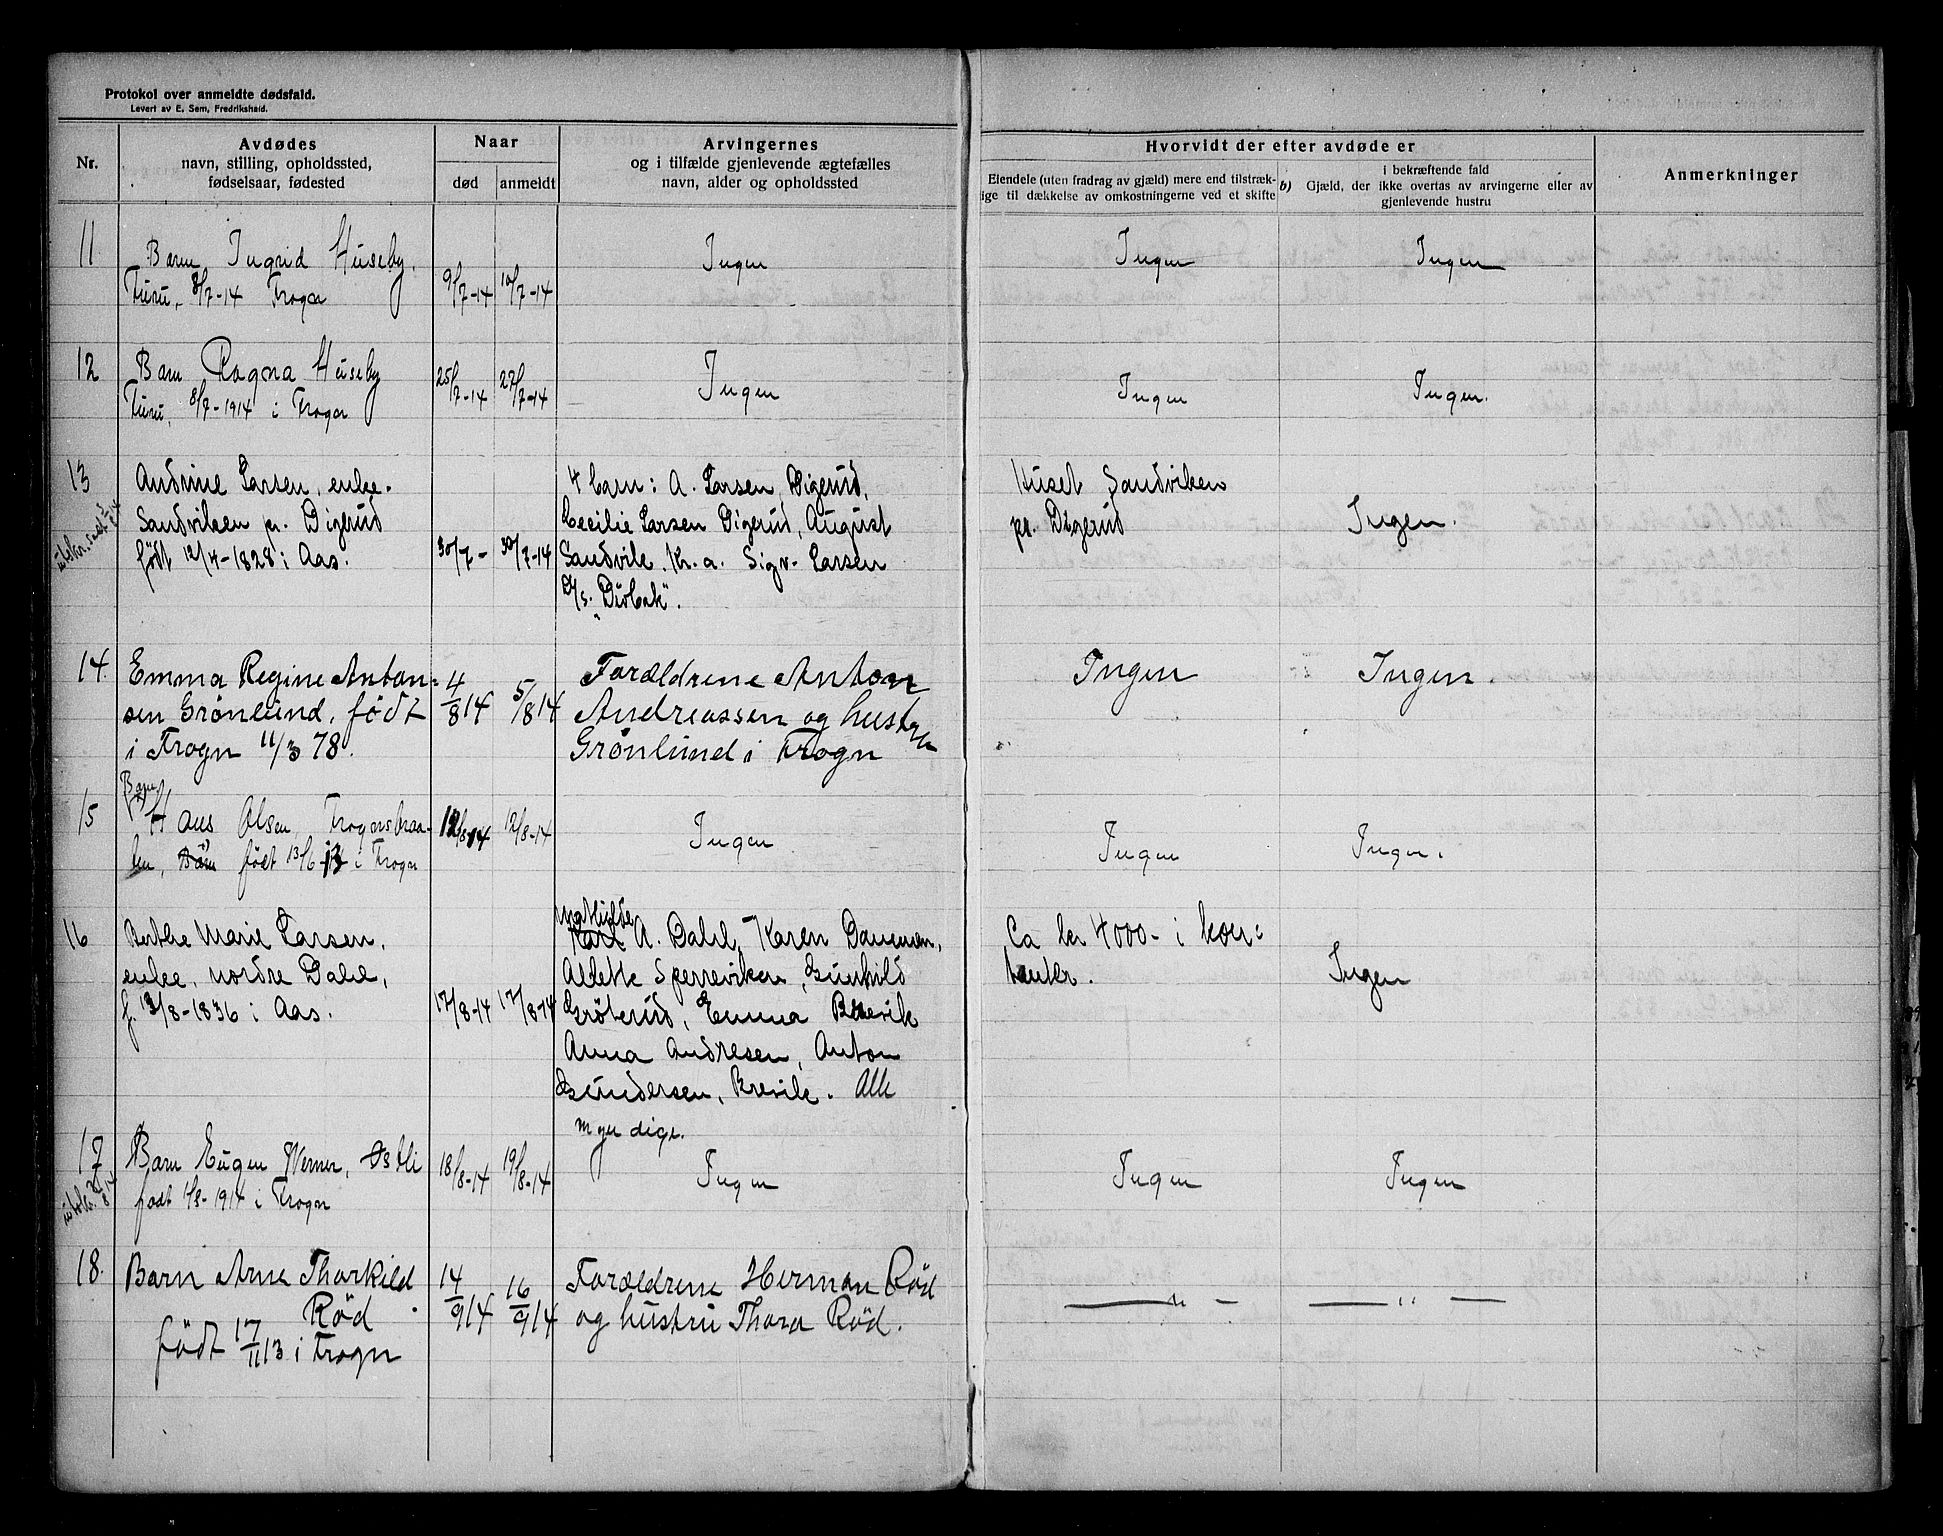 Protokol over anmeldte dødsfald.
Levert av E. Sem, Fredrikshald.
Nr.
Avdødes
navn, stilling, opholdssted,
fødselsaar, fødested
Naar
død
anmeldt
Arvingernes
og i tilfælde gjenlevende ægtefælles
navn, alder og opholdssted
Hvorvidt der efter avdøde er
Eiendele (uten fradrag av gjæld) mere end tilstræk-
ige til dækkelse av omkostningerne ved et skifte
i bekræftende fald
b) Gjæld, der ikke overtas av arvingerne eller av
gjenlevende hustru
Anmerkninger
11
Barn Ingrid Huseby,
Furu, 8/7-14 Frogn
9/7-14
10/7-14
Ingen
Ingen
Ingen
12
Barn Ragna Huseby
Furu, 8/7-1914 i Frogn
25/7-14
27/7-14
Ingen
Ingen
Ingen.
13
Andrine Larsen, enke.
Sandviken pr. Digerud
født 12/4-1828 i Aas.
30/7-
30/7-14
4 barn: A. Larsen, Digerud,
Cecilie Larsen Digerud, August
Sandvik, Kr.a. Sigv. Larsen
D/s. "Drøbak".
Huset Sandviken
pr. Digerud
Ingen.
14.
Emma Regine Anton-
sen Grønlund, født
i Frogn 11/3 78.
4/8 14
5/8 14
Forældrene Anton
Andreassen og hustru
Grønlund i Frogn
Ingen
Ingen.
15
Barn
Hans Olsen, Frognsbraa-
ten, Barn født 13/6-13 i Frogn
12/8-14
12/8-14
Ingen
Ingen
Ingen.
16
Berthe Marie Larsen,
enke, nordre Dahl,
f. 13/8-1836 i Aas.
17/8-14
17/8-14
Mathilde
Karl A. Dahl, Karen Dammen,
Aldette Sperreviken, Gunhild
Grøterud, Emma Brevik
Anna Andresen, Anton
Gundersen, Brevik. Alle
myndige.
Ca kr 4000- i kon-
tanter.
Ingen
17
Barn Eugen Werner, Østli
født 1/8-1914 i Frogn
18/8-14
19/8-14
Ingen
Ingen
Ingen
18.
Barn Arne Thorkild
Rød
født 17/11 13 i Frogn
14/9 14
16/9 14
Forældrene Herman Rød
og hustru Thora Rød.
— " —
— " —